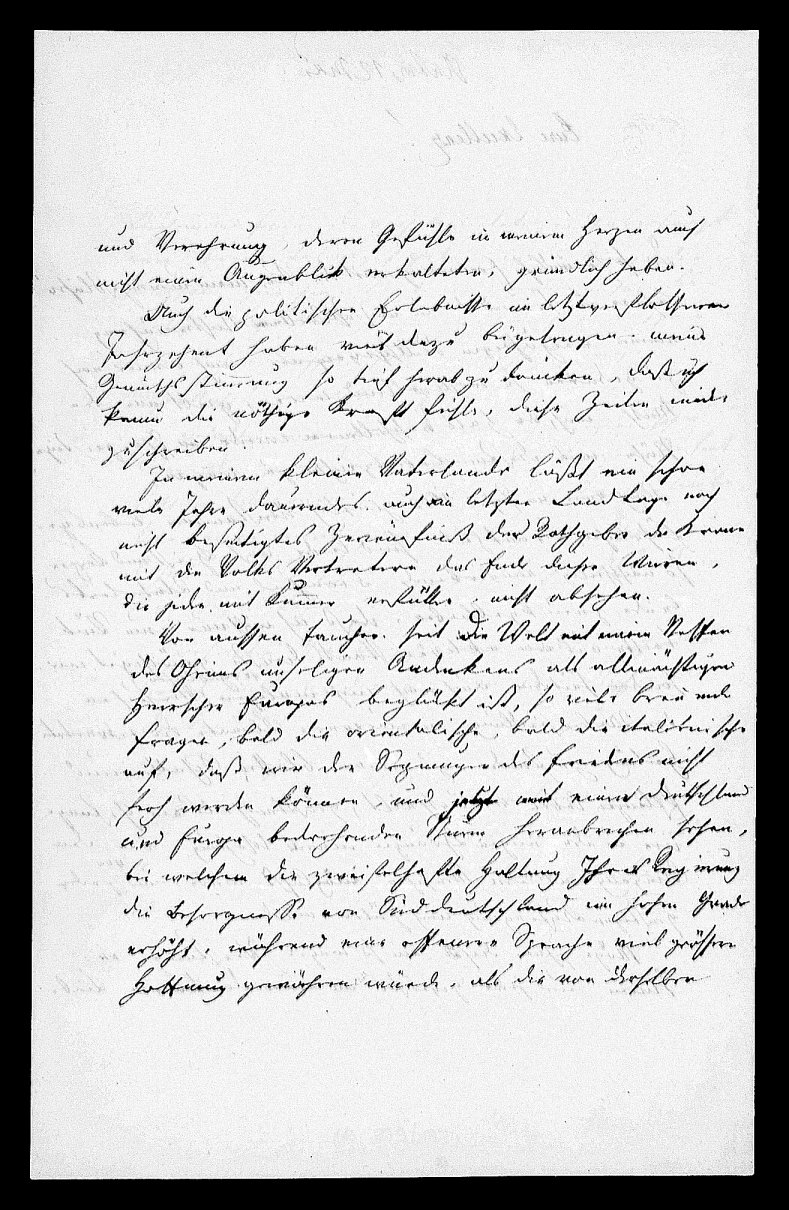 und Verehrung, deren Gefühle in meinem Herzen auch
nicht einen Augenblick erkalteten, gründlich haben.
Auch die politischen Erlebnisse im letztverflossenen
Jahrzehent haben viel dazu beigetragen, meine
Gemüthsstimmung so tief herabzudrücken, daß ich
kaum die nöthige Kraft fühle, diese Zeilen nieder
zuschreiben.
In meinem kleinen Vaterlande läßt ein schon
viele Jahre dauerndes, auch im letzten Landtage noch
nicht beseitigtes Zerwürfniß der Rathgeber der Krone
mit den Volks Vertretern das Ende dieser Wirren,
die jeden mit Kummer erfüllen, nicht absehen.
Von aussen tauchen, seit die Welt mit einem Neffen
des Oheims unseligen Andenkens als allmächtigen
Herrscher Europas beglükt ist, so viele brennende
Fragen, bald die orientalische, bald die italienische
auf, daß wir der Segnungen des Friedens nicht
froh werden können, und jetzt einen Deutschland
und Europa bedrohenden Sturm hereinbrechen sehen,
bei welchem die zweifelhafte Haltung Ihrer Regierung
die Besorgnisse von Süddeutschland im hohen Grade
erhöht, während eine offenere Sprache viel grössere
Hoffnung gewähren würde, als die von derselben